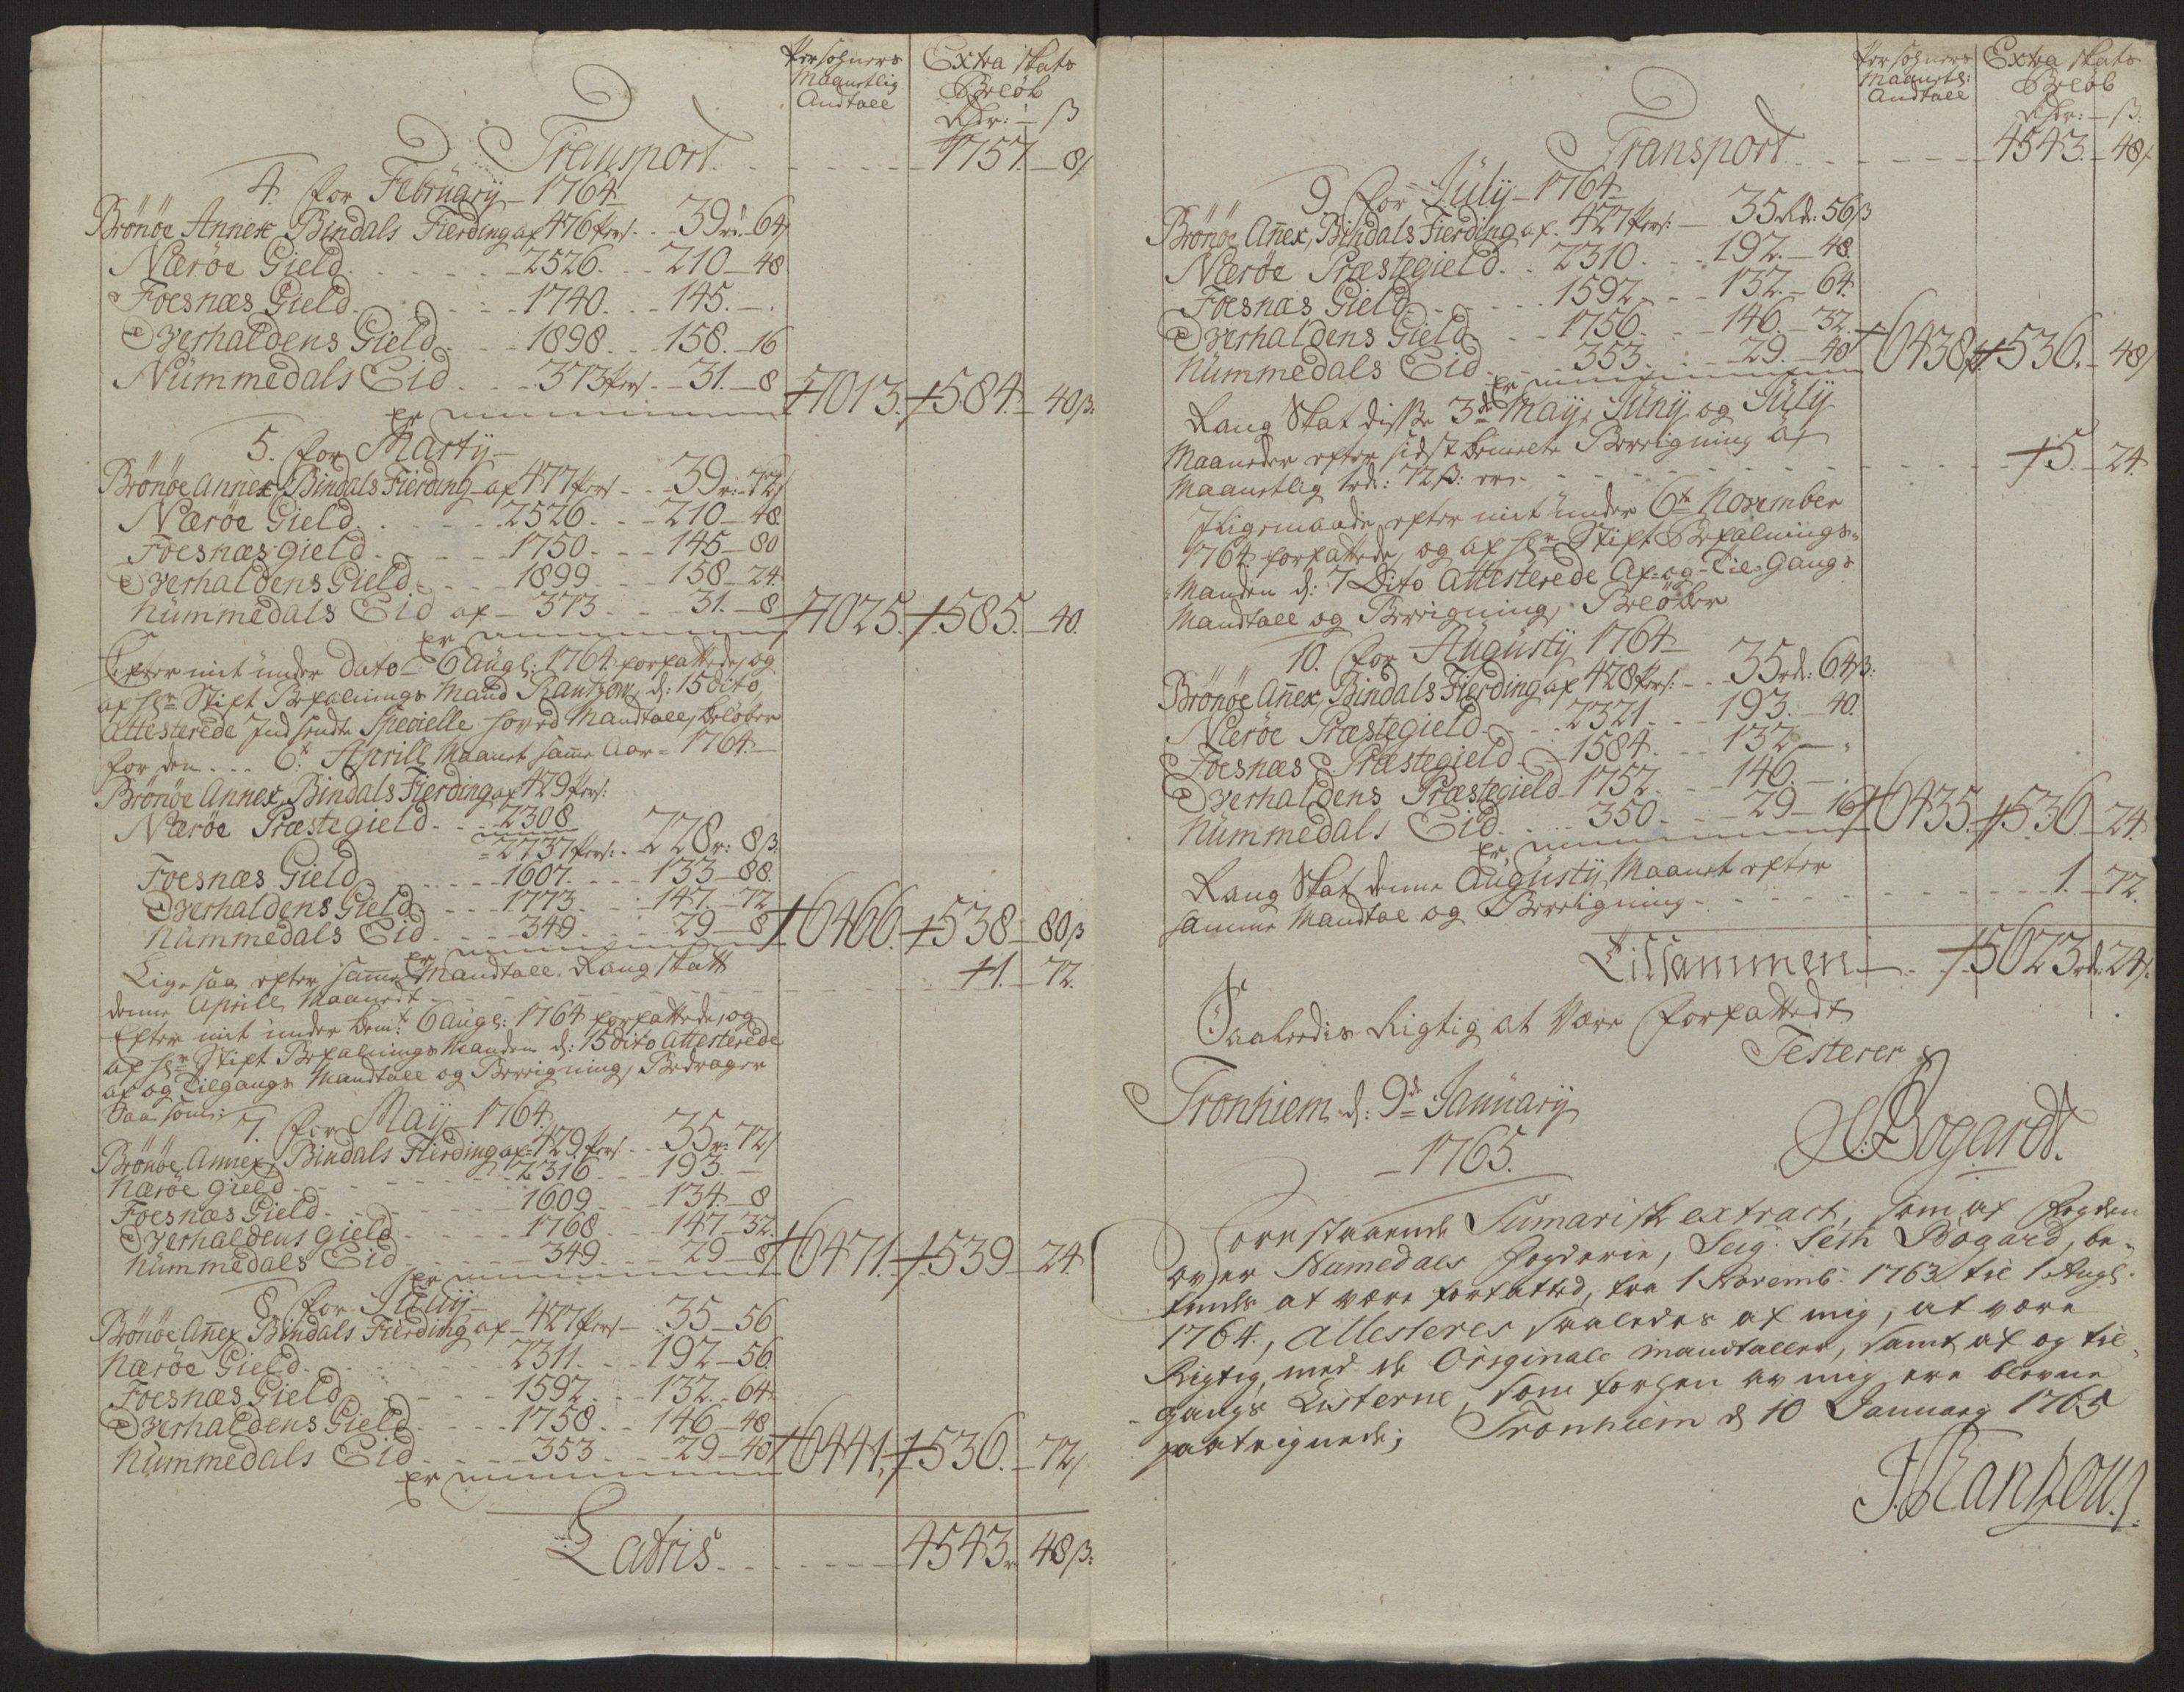 Persohners Extra skats
Maanetlig Beløb
Andtall Rdr: ß
Transport. 1757. 8/
4. for February 1764
Brönöe Annex Bindals Fierding af 476 pers. 39 r. 64/
Nærøe Gield. 2526. 210 48
Foesnæs Gield. 1740. 145.
Overhaldens Gield. 1898. 158. 16
Nümmedals Eid. 373 pers. 31. 8
er 7013. 584. 40 ß:
5. for Marty
Brönöe Annex Bindals Fierding af 477 pers. 39 r: 72/
Nærøe Gield. 2526. 210 48.
Foesnæs gield. 1750. 145 80
Overhaldens Gield. 1899 158 24.
Nümmedals Eid af 373 31. 8
er 7025. 585. 40.
Efter mit under Dato 6 Augl: 1764 forfattede, og
af Hr Stift Befalnings Mand Rantzow, d: 15 dito,
Attesterede Indsendte Specielle Hoved Mandtall, beløber
for den 6t Aprill Maanet samme Aar 1764
Brönöe Annex, Bindals Fierding af 429 pers:
Nærøe Præstegield. 2308
2737 pers: 228 r: 8 ß
Foesnæs Gield 1607. 133 88.
Overhaldens Gield. 1773. 147 72
Nümmedals Eid. 349. 29 8
er 6466. 538 80 ß
Lige saa efter samme Mandtall Rang skatt
denne Aprill Maanedt 1. 72.
Efter mit under bemt: 6 Augl: 1764 forfattede, og
af Hr Stift Befalnings Manden d: 15 dito Attesterede
af og Tilgangs Mandtall og Beregning, Bedrager
Saasom:
7. for May 1764.
Brönöe Annex, Bindals Fierding af 429 pers 35 r 72/
Nærøe gield 2316 193.
Foesnæs Gield. 1609 134 8
Overhaldens gield. 1768 147 32.
Nümmedals Eid 349 29 8
er 6471. 539 24.
8. for Juny
Brönöe Añex Bindals Fierding af 427 pers 35 56
Nærøe Gield. 2311 192 56.
Foesnæs Gield 1592 132 64
Overhaldens Gield. 1758 146 48
Nümmedals Eid. 353 29 40
er 6441. 536. 72/
Latris. 4543 r 48 ß:
Persohners Extra skats
Maanetl: Beløb
Andtall Rdr: ß:
Transport. 4543. 48/
9 for July 1764
Brönöe Añex, Bindals Fierding af 427 pers: 35 Rd: 56 ß
Nærøe Præstegield. 2310. 192. 48.
Foesnæs Gield. 1592. 132. 64.
Overhaldens Gield. 1756. 146. 32.
Nümmedals Eid. 353. 29. 40
er 6438. 536. 48/
Rang Skat disse 3de May, Juny og July
Maaneder efter sidst bemelte Beregning af
Maanetlig 1rd: 72 ß: er 5. 24.
Iligemaade efter mit under 6te November
1764 forfattede, og af Hr Stift Befalnings
Manden d: 7 Dito Attesterede Af og Til Gangs
Mandtall og Beregning, Beløber
10. for Augusty 1764
Brönöe Añex, Bindals Fierding af 428 pers: 35 rd: 64 ß:
Nærøe Præstegield. 2321. 193. 40.
Foesnæs Præstegield 1584. 132
Overhaldens Præstegield 1752 146.
Nümmedals Eid. 350. 29 16
er 6435. 536. 24.
Rang Skat denne Augusty Maanet efter
samme Mandtal og Beregning. 1. 72.
Tilsammen 5623 rd: 24/.
Saaledis Rigtig at Være forfattedt
Testerer
Tronhiem d: 9de January
1765.
S. Bogardt.
Forestaaende Sumarisk extract, som af fogden
over Numedals fogderie, Seig: Seth Bogard, be-
findes at være forfatted, fra 1 Novemb: 1763 til 1 Augl:
1764., Attesteres saaledes af mig, at være
Rigtig, med de Originale mandtaller, samt af og til-
gangs Listerne, som forhen av mig ere blevne
paategnede; Tronhiem d 10 January 1765
J Rantzow.